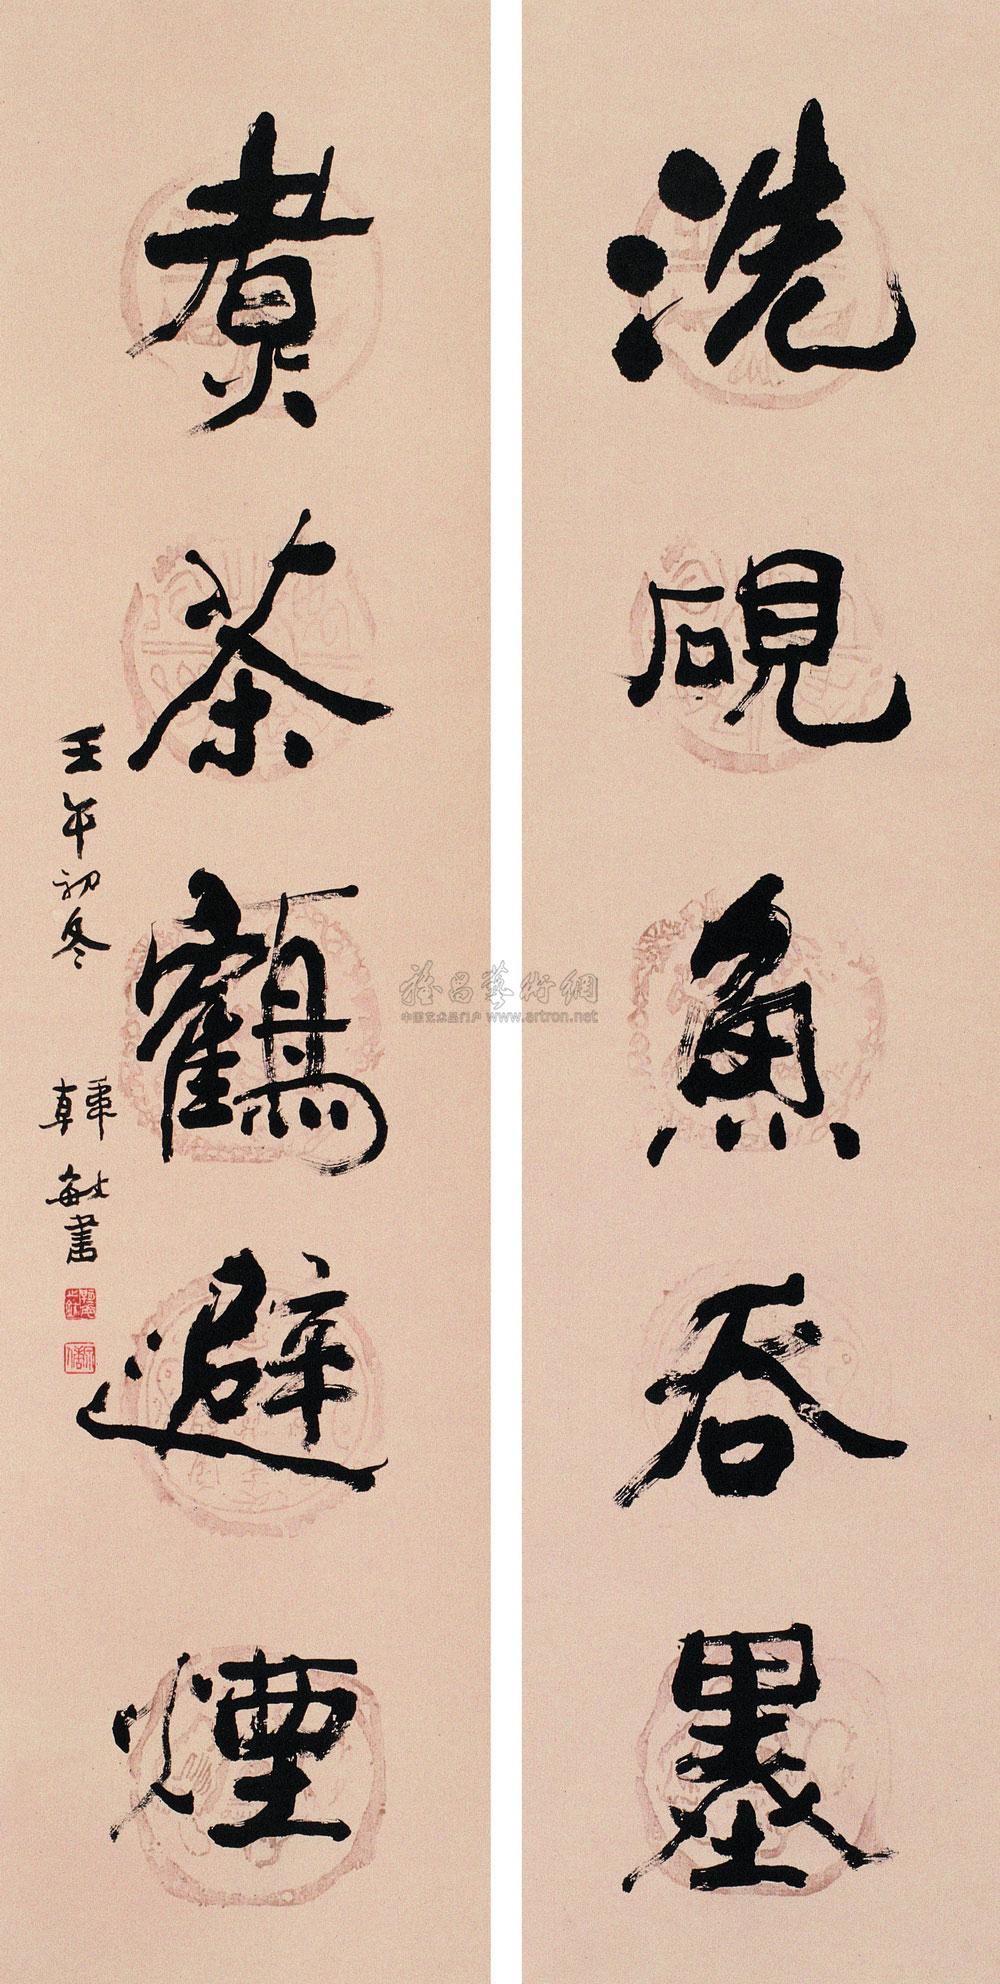 洗硯魚吞墨
煮茶鶴避煙
壬午初冬
韓敏書
雅昌藝術網
中国艺术品门户 www.artron.net